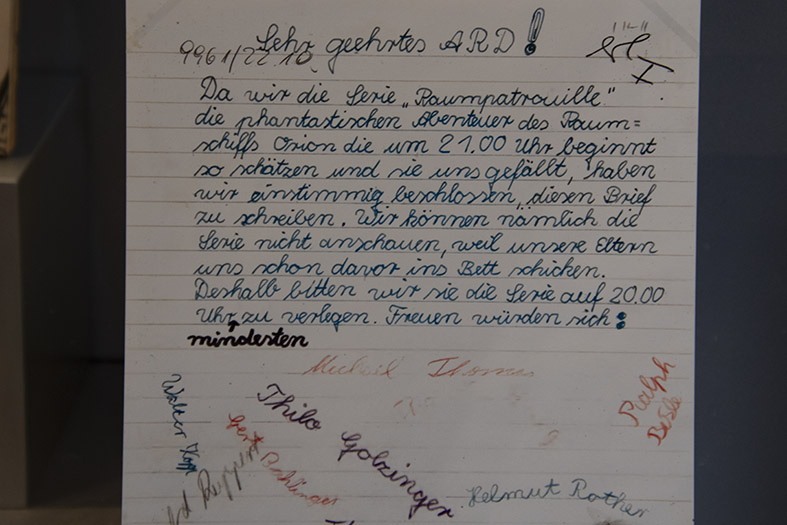 Sehr geehrtes ARD!
9961/22.10.
Da wir die Serie „Raumpatrouille"
die phantastischen Abenteuer des Raum=
schiffs Orion die um 21.00 Uhr beginnt
so schätzen und sie uns gefällt, haben
wir einstimmig beschlossen, diesen Brief
zu schreiben. Wir können nämlich die
Serie nicht anschauen, weil unsere Eltern
uns schon davor ins Bett schicken.
Deshalb bitten wir sie die Serie auf 20.00
Uhr zu verlegen. Freuen würden sich:
mindesten
Michael Thomas
Ralph
Walter
Thilo Golzinger
Gert
Ruppert
Helmut Rother